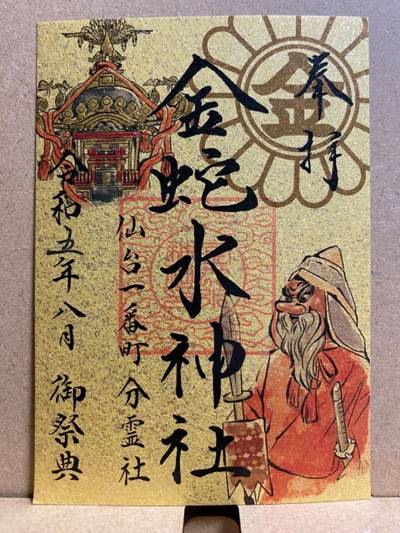 奉拝
金
金蛇水神社
仙台一番町分霊社
令和五年八月御祭典